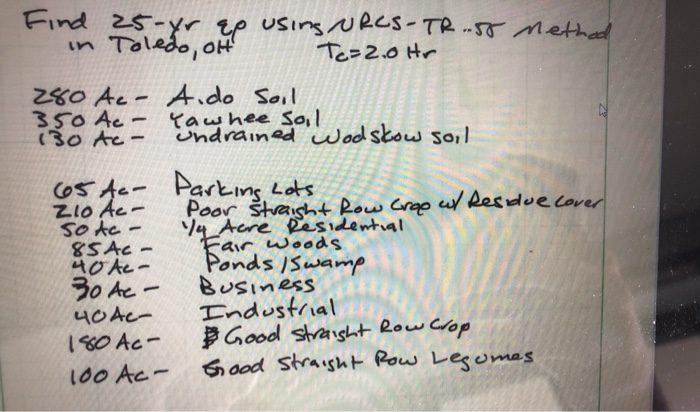 Find 25-yr qp using NRCS-TR-55 Method
in Toledo, OH Tc=2.0 Hr
280 Ac - Aido Soil
350 Ac - Yawhee Soil
130 Ac - Undrained Wodskow soil
65 Ac- Parking Lots
210 Ac- Poor Straight Row Crop w/ Residue Cover
50 Ac - 1/4 Acre Residential
85 Ac - Fair Woods
40 Ac- Ponds/Swamp
30 Ac - Business
40 Ac- Industrial
180 Ac- Good Straight Row Crop
100 Ac- Good Straight Row Legumes